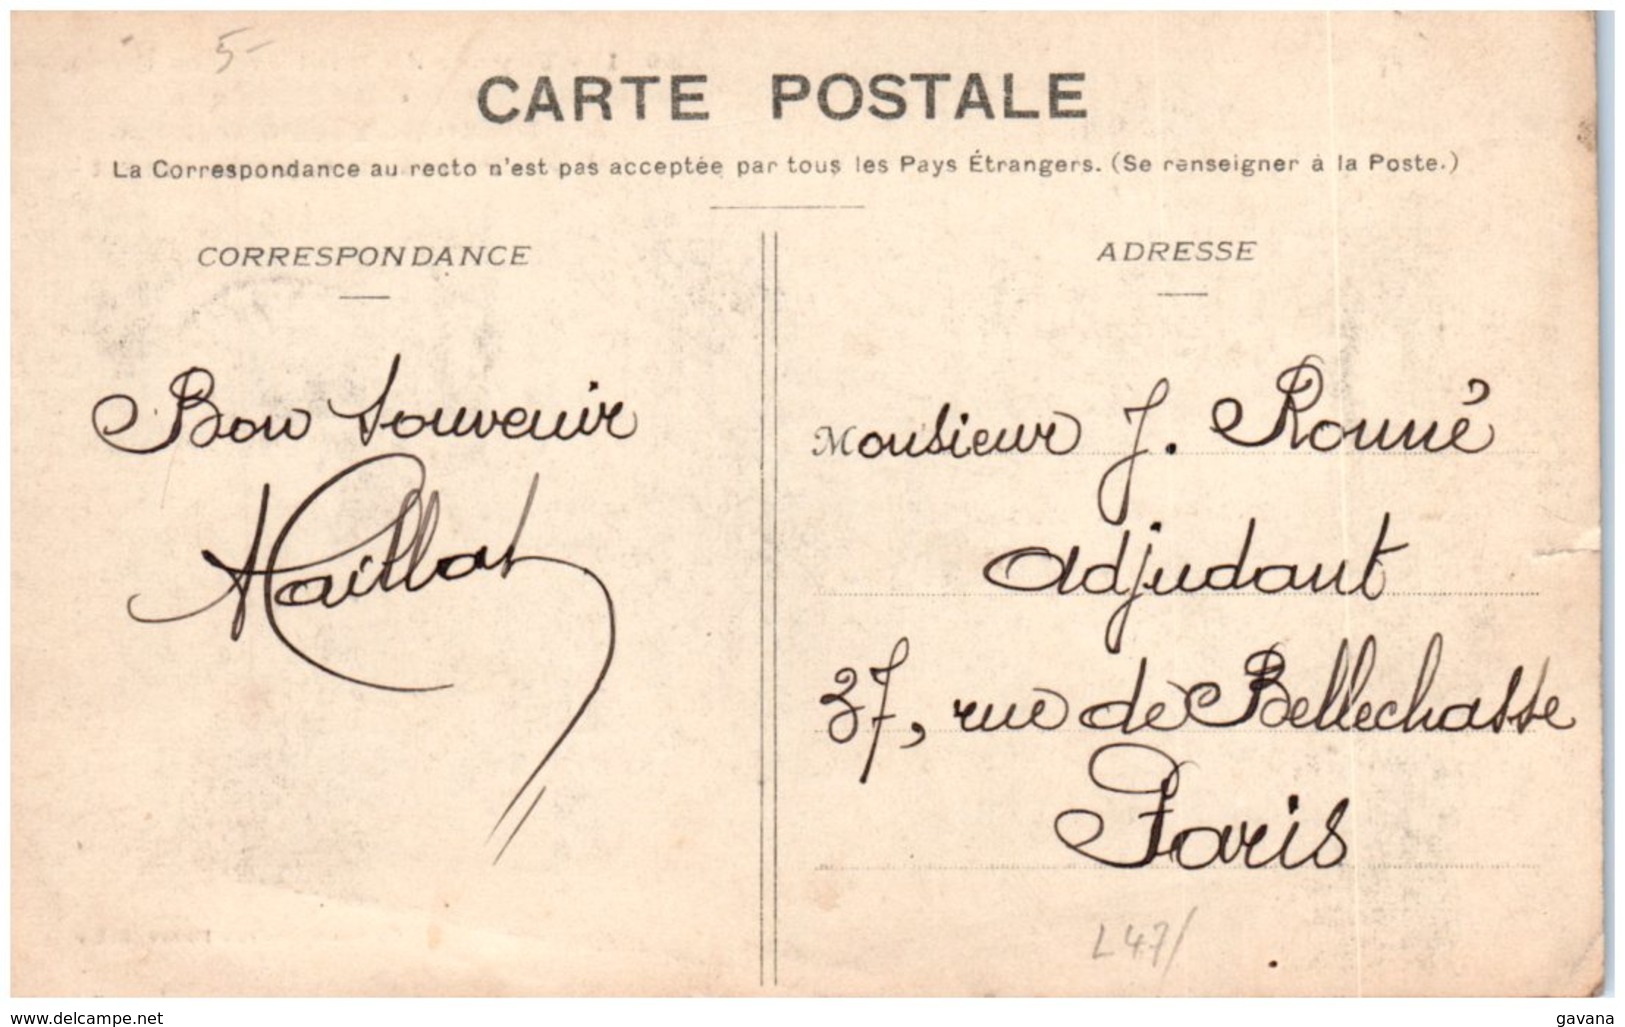 5-
CARTE POSTALE
La Correspondance au recto n'est pas acceptée par tous les Pays Étrangers. (Se renseigner à la Poste.)
CORRESPONDANCE
Bon souvenir
Maillot
ADRESSE
Monsieur J. Ronné
adjudant
37, rue de Bellechasse
Paris
L47/
www.delcampe.net
gavana